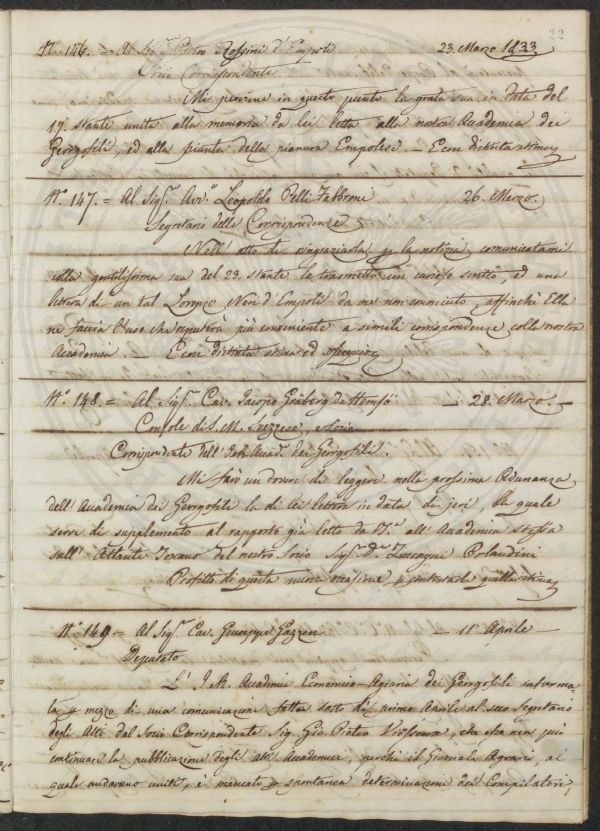 22
N.º 146. = Al Sig.r Pietro Rossini d'Empoli 23. Marzo 1833
Socio Corrispondente
Mi perviene in questo punto la grata sua in data del
17. stante unita alla memoria da lei letta alla nostra Accademia dei
Georgofili, ed alla pianta della pianura Empolese. E con distinta stima
N.º 147. = Al Sig.r Avv.º Leopoldo Pelli Fabbroni 26. Marzo.
Segretario delle Corrispondenze
Nell'atto di ringraziarla p la notizia comunicatami
colla gentilissima sua del 23. stante le trasmetto un curioso scritto, ed una
lettera di un tal Lorenzo Neri d'Empoli da me non conosciuto, affinchè Ella
ne faccia l'uso che reputerà più conveniente a simili corrispondenze colla nostra
Accademia — E con distinta stima ed
N.º 148. = Al Sig.r Cav. Jacopo Gråberg da Hemsö — 28. Marzo. —
Console di S. M. Svezzese, e Socio
Corrispondente dell' I. e R. Accad. dei Georgofili.
Mi farò un dovere di leggere nella prossima Adunanza
dell' Accademia dei Georgofili la di lei lettera in data di jeri, la quale
serve di supplemento al rapporto già letto da V.S. all' Accademia stessa
sull' Atlante Toscano del nostro Socio Sig.r D.r Zuccagni Orlandini
Profitto di questa nuova occasione p
N.º 149. = Al Sig.r Cav. Giuseppe Gazzeri — 11 Aprile —
Deputato
L' I. e R. Accademia Economico-Agraria dei Georgofili informa-
ta p mezzo di una comunicazione fatta sotto dì primo Aprile al suo Segretario
degli Atti dal Socio Corrispondente Sig. Gio. Pietro Vieusseux, che essa non può
continuare la pubblicazione degli atti Accademici, perchè il Giornale Agrario, al
quale andavano uniti, è mancato p spontanea determinazione dei Compilatori,